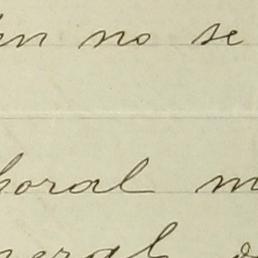 en no se
horal m
neral